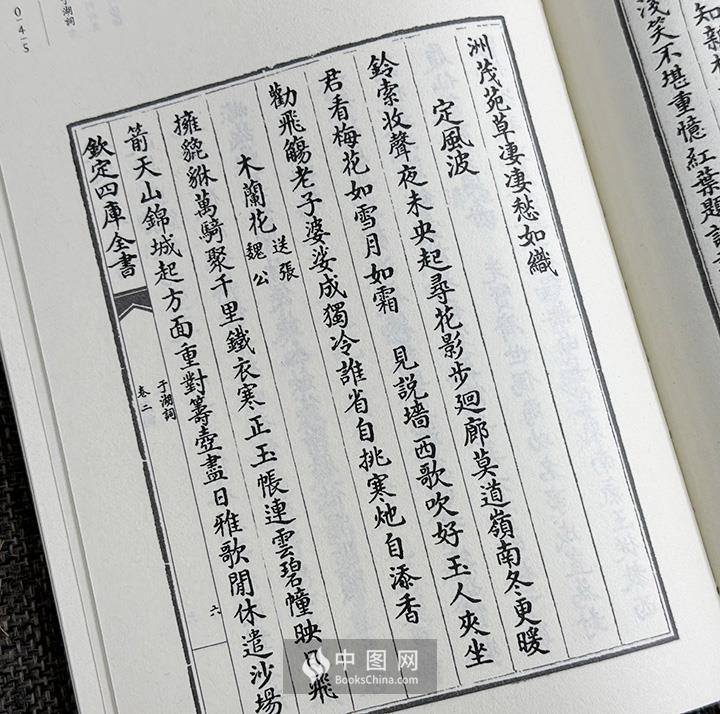 知新
淺笑不堪重憶紅葉題
洲茂苑草凄凄愁如織
定風波
鈴索收聲夜未央起尋花影步廻廊莫道嶺南冬更暖
君看梅花如雪月如霜　見說墻西歌吹好玉人夾坐
勸飛觴老子婆娑成獨冷誰省自挑寒灺自添香
木蘭花 送張魏公
擁貔貅萬騎聚千里鐵衣寒正玉帳連雲碧幢映日飛
箭天山錦城起方面重對籌壺盡日雅歌閒休遣沙場
欽定四庫全書
于湖詞
卷二
六
于湖詞
045
中图网
BooksChina.com